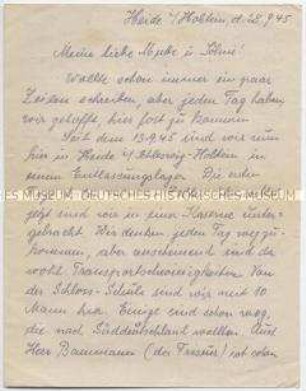 Heide i/Holstein, d. 28.9.45
Meine liebe u. Söhne!
Wollte schon immer ein paar
Zeilen schreiben, aber jeden Tag haben
wir gehofft hier fort zu kommen.
Seit dem 13.9.45 sind wir nun
hier in Heide i/Schleswig-Holstein in
einem Entlassungslager. Die ersten
ES MUSEUM DEUTSCHES HISTORISCHES MUSEUM
jetzt sind wir in einer Kaserne unter-
gebracht. Wir denken jeden Tag wegzu-
kommen, aber anscheinend sind da
wohl Transportschwierigkeiten. Von
der Schloss-Schule sind wir mit 10
Mann hier. Einige sind schon weg,
die nach Süddeutschland wollten. Auch
Herr Baumann (der Friseur) ist schon